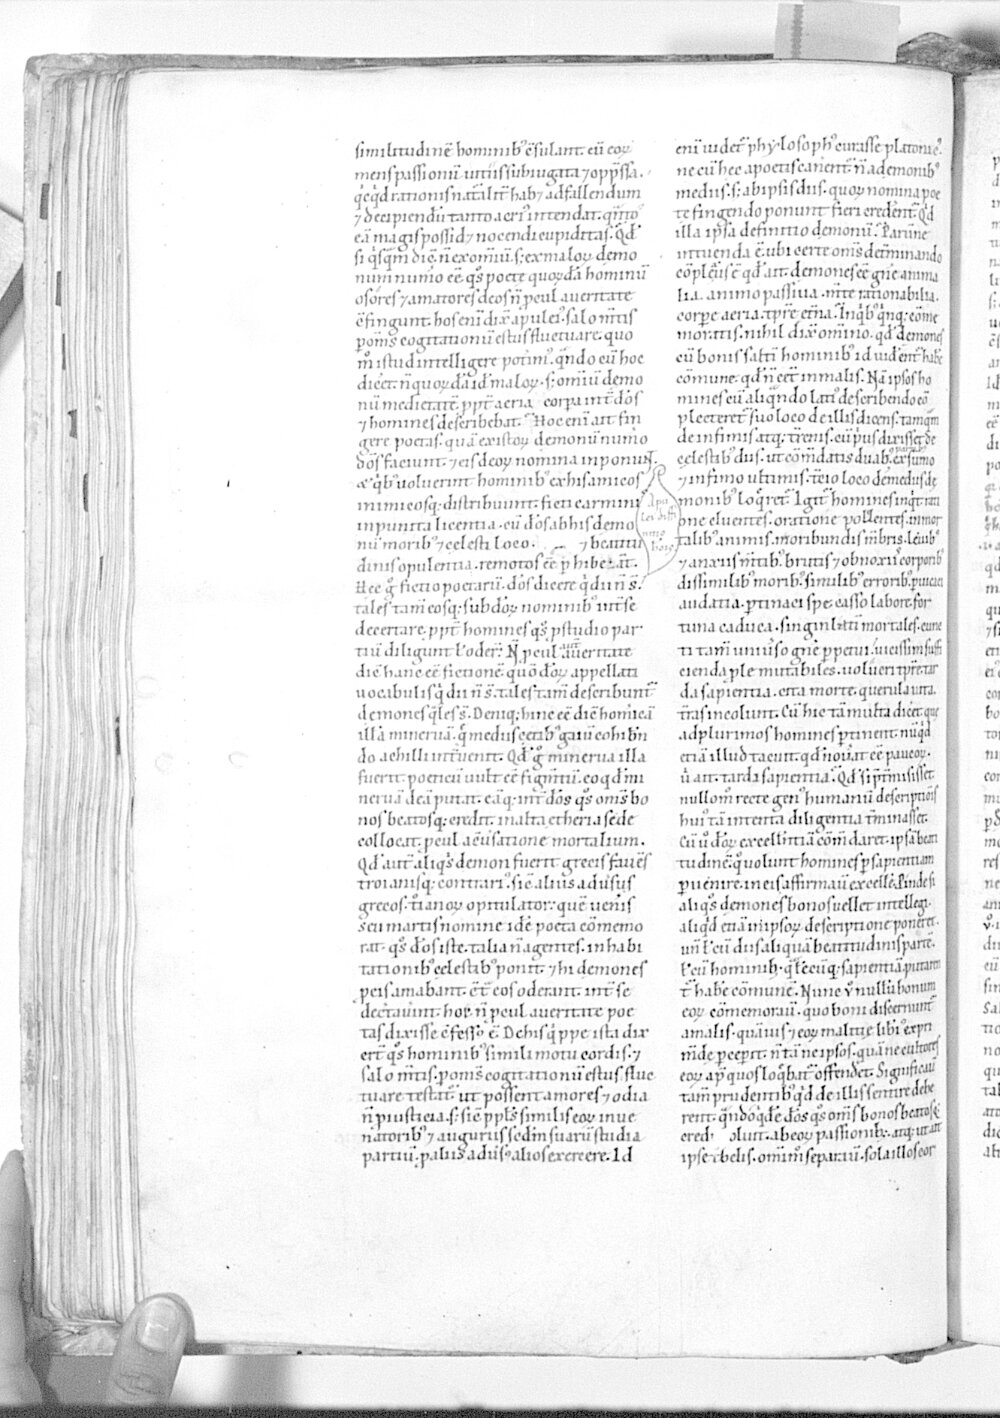 similitudinē hominibꝰ cōsulant. cū eoꝝ
mens passionū uitiis subiugata ⁊ opp̄ssa.
q̇cq̇d rationis nat̄alit̄ hab& ad fallendum
⁊ decipiendū tanto acriꝰ intendat. q̄nto
eā magis possid& nocendi cupiditas. Qd̄
si q̇sq̄m dic̄. n̄ ex omīū. s; ex maloꝝ demo
num numo eē. q̊s poete quoꝝdā hominū
osores ⁊ amatores deos n̄ pcul a ueritate
cōfingunt. hos eni dix̄ apuleiꝰ salo mtis
p om̄s cogitationū estus fluctuare. quo
mͦ istud intelligere potimꝰ. q̄ndo cū hoc
dicet. n̄ quoꝝdā id ē maloꝝ. s; omīū demo
nū medietatē. ppt̄ aeria corpa int̄ dōs
⁊ homines describebat. Hoc eni ait fin
gere poetas. quā ex istoꝝ demonū numo
dōs faciunt. ⁊ eis deoꝝ nomina inponūt.
& q̇bꝰ uoluerint hominibꝰ ex his amicos
inimicosq; distribuunt. ficti carminis
inpunita licentia. cū dōs ab his demo
nū moribꝰ ⁊ celesti loco. ⁊ beatitu
dinis opulentia. remotos eē phibeat.
Hec ḡ fictio poetarū. dōs dicere q̇ dii n̄ s̄.
tales tam̄ eosq; sub dōꝝ nominibꝰ int̄ se
decertare. ppt̄ homines q̊s p studio par
tiū diligunt ł oder̄. N̄ pcul aut̄ a ueritate
dic̄ hanc eē fictionē. quō dōꝝ appellati
uocabulis q̇ dii n̄ s̄. tales tam̄ describunt̄
demones q̄les s̄. Deniq; hinc eē dic̄ homīcā
illā mineruā. q̄ mediis cetibꝰ gaiū cohibn̄
do achilli int̄uenit. Qd̄ ḡ minerua illa
fuerit. poeticū uult eē figm̄tū. eo qd̄ mi
neruā deā putat. eāq; int̄ dōs q̊s om̄s bo
nos beatosq; credit. in alta etheria sede
collocat. pcul a cōuersatione mortalium.
Qd̄ aut̄ aliq̊s demon fuerit grecis fauēs
troianisq; contrariꝰ. sic̄ alius aduersus
grecos. troianoꝝ opitulator: quē uenis
seu martis nomine idē poeta cōmemo
rat. q̊s dōs iste. talia n̄ agentes. in habi
tationibꝰ celestibꝰ ponit. ⁊ hi demones
p eis amabant. & cōt̄ eos oderant. int̄ se
dectauint. hoc n̄ pcul a ueritate poe
tas dixisse cōfessꝰ ē. De his q̇ppe ista dix
ert. q̊s hominibꝰ simili motu cordis. ⁊
salo mtis. p om̄s cogitationū estus. fluc
tuare testat̄. ut possent amores ⁊ odia
n̄ p iusticia. s; sic̄ ppls̄ similis eoꝝ in ue
natoribꝰ ⁊ aurigis scd̄m suarū studia
partiū. p aliis adusꝰ alios exercere. Id
eni uidet̄ phylosophꝰ curasse platonicꝰ.
ne cū hec a poetis canent̄. n̄ a demonibꝰ
mediis. s; ab ipsis diis. quoꝝ nomina poe
te fingendo ponunt. fieri credent̄. Qd̄
illa ipsa definitio demonū. Parū ne
intuenda ē. ubi certe om̄s det̄minando
cōplexꝰ ē. qd̄ ait. demones eē gn̄e anima
lia. animo passiua. m̄te rationabilia.
corpe aeria. tpre et̄na. In q̇bꝰ q̇nq; cōme
moratis. nihil dix̄ omīno. qd̄ demones
cū bonis saltī hominibꝰ id uident̄ habe
cōmune. qd̄ n̄ eēt in malis. Nā ipsos ho
mines cū aliq̄ndo latiꝰ describendo cō
plecteret̄. suo loco de illis dicens. tamq̄m
de infimis atq; t̄renis. cū pͥus dixisset de
celestibꝰ diis. ut cōm̄datis duabꝰ partibꝰ ex sūmo
⁊ infimo ultimis. t̄cio loco de mediis de
monibꝰ loq̄ret̄. Igit̄ homines inq̇t. rati
one eluentes. oratione pollentes. inmor
talibꝰ animis. moribundis mb̄ris. leuibꝰ
⁊ anxiis mtibꝰ. brutis ⁊ obnoxiis corporibꝰ
dissimilibꝰ moribꝰ. similibꝰ erroribꝰ. puicaci
audatia. ptinaci spe. casso labore. for
tuna caduca. singulatī mortales. cunc
ti tam̄ uniuso gn̄e ppetui. uicissim suffi
cienda ple mutabiles. uolucri tpre. tar
da sapientia. cita morte. querula uita.
t̄ras incolunt. Cū hic tā multa dicet̄ que
ad plurimos homines ptinent. nūq̇d
etiā illud tacuit. qd̄ nou̇at eē paucoꝝ.
u̇ ait. tarda sapientia. Qd̄ si p̄t̄misisset
nullomͦ recte genꝰ humanū descriptiōis
huiꝰ tā intenta diligentia t̄minasset.
Cū ů dōꝝ excellentiā cōm̄daret. ipsā beati
tudinē. q̊ uolunt homines p sapientiam
puenire. in eis affirmauit excellē. Pinde si
aliq̊s demones bonos uellet intellegi.
aliq̇d etiā in ipsoꝝ descriptione poneret.
un̄ ł cū diis aliquā beatitudinis partē.
ł cū hominibꝫ. q̄lēcūq; sapientiā. putarent̄
habe cōmunē. Nunc ů nullū bonum
eoꝝ cōmemorauit. quo boni discernunt̄
a malis. quāuis ⁊ eoꝝ malitie libiꝰ expri
m̄de pepcit. n̄ tā ne ipsos. quā ne cultores
eoꝝ ap̄ quos loq̄bat̄ offendet̄. Significauit
tam̄ prudentibꝰ qd̄ de illis sentire debe
rent. q̄ndoq̇dē dōs q̊s om̄s bonos beatosq;
credi uoluit. ab eoꝝ passionibꝫ. atq; ut ait
ipse turbelis. om̄imͦ separauit. sola illos cor
Apu
lei diffi
nitio
hoīs